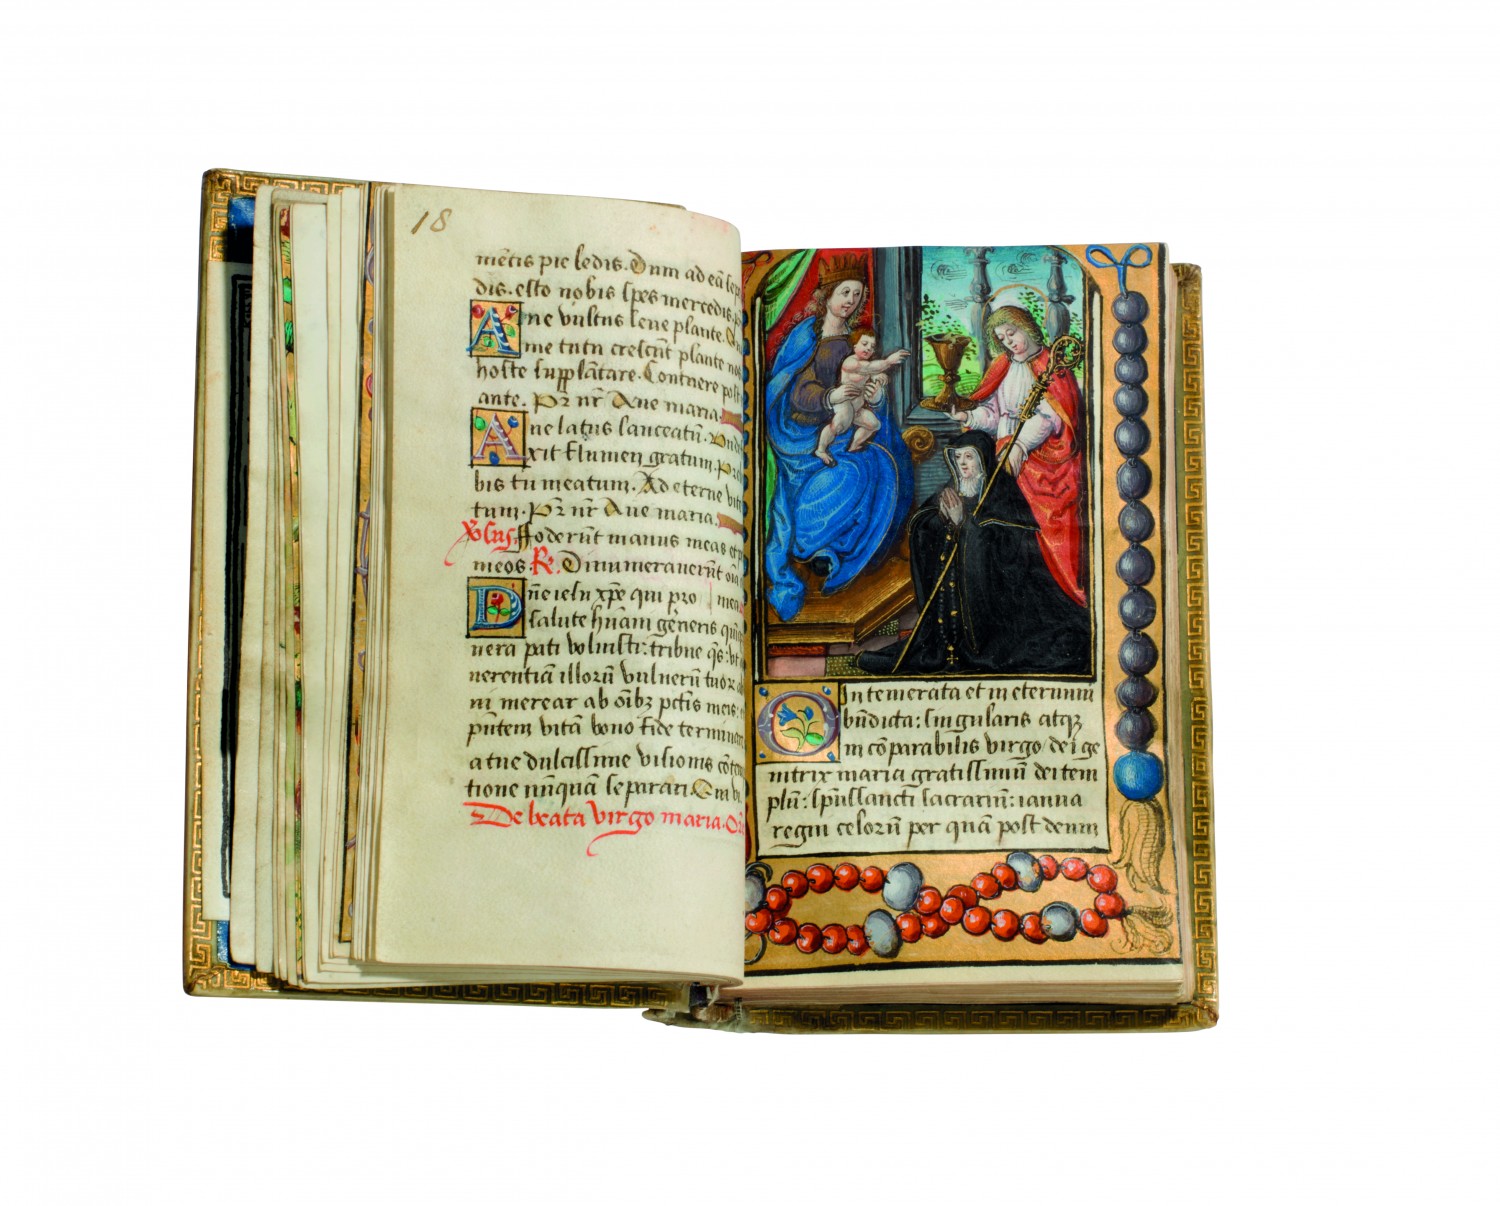 18
mētis pie ledis. Dum ad eā
dis. esto nobis spes mercedis.
Aue vultus lene plante.
me tutu crescūt plante
hoste supplātare. Conterere
ante. Pr̄ nr̄ Aue maria.
Aue latus lanceatū.
xit flumen gratum.
bis tu meatum. Ad eterne
tum. Pr̄ nr̄ Aue maria.
Foderūt manus meas et
meos. R̄. Dinumeraverūt oīa
Dn̄e iesu xp̄e qui pro mea
salute hūani gēneris
vera pati voluisti: tribue qs: vt
nerentiā illorū vulnerū tuor
ni merear ab oīb; pctīs meis:
pūtem vitā bono fide terminar
a tue dulcissime visionis cōtem
tione nūnquā separari. Qui vi.
De beata virgo maria.
O Intemerata et in eternum
bn̄dicta: singularis atq;
incōparabilis virgo dei ge
nitrix maria gratissimū dei tem
plū: sp̄ussancti sacrariū: ianua
regni celorū per quā post deum